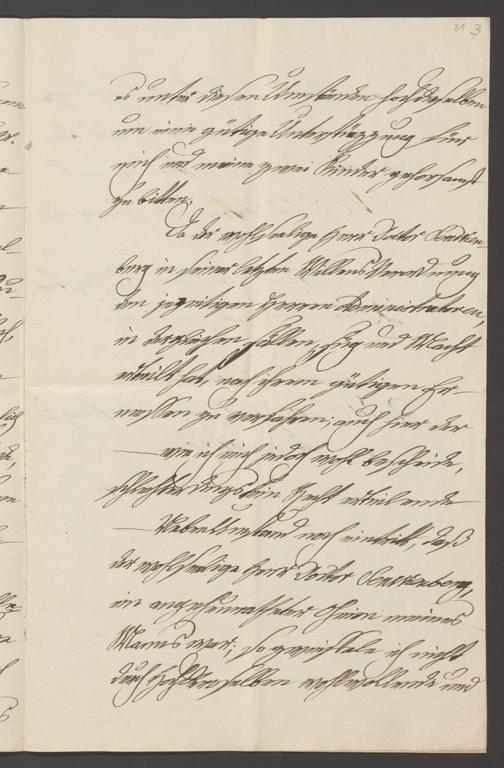 21 3
es unter diesen Umständen Hochdieselben
um eine gütige Unterstützung für
mich und meine zwei Kinder gehorsamst
zu bitten.
Da der wohlselige Herr Doctor Senken-
berg in seiner letzten Willens Verordnung
den jezeitigen Herren Administratoren,
in dergleichen Fällen, Fug und Macht
ertheilt hat, nach ihrem gütigen Er-
messen zu verfahren; auch hier der
— wie ich mich jedoch wohl bescheide,
schlechterdings kein Recht ertheilende
— Nebenumstand noch eintritt, daß
der wohlselige Herr Doctor Senkenberg,
ein angeheuratheter Oheim meines
Manns war; so zweifele ich nicht
durch Hochderoselben wohlwollende und